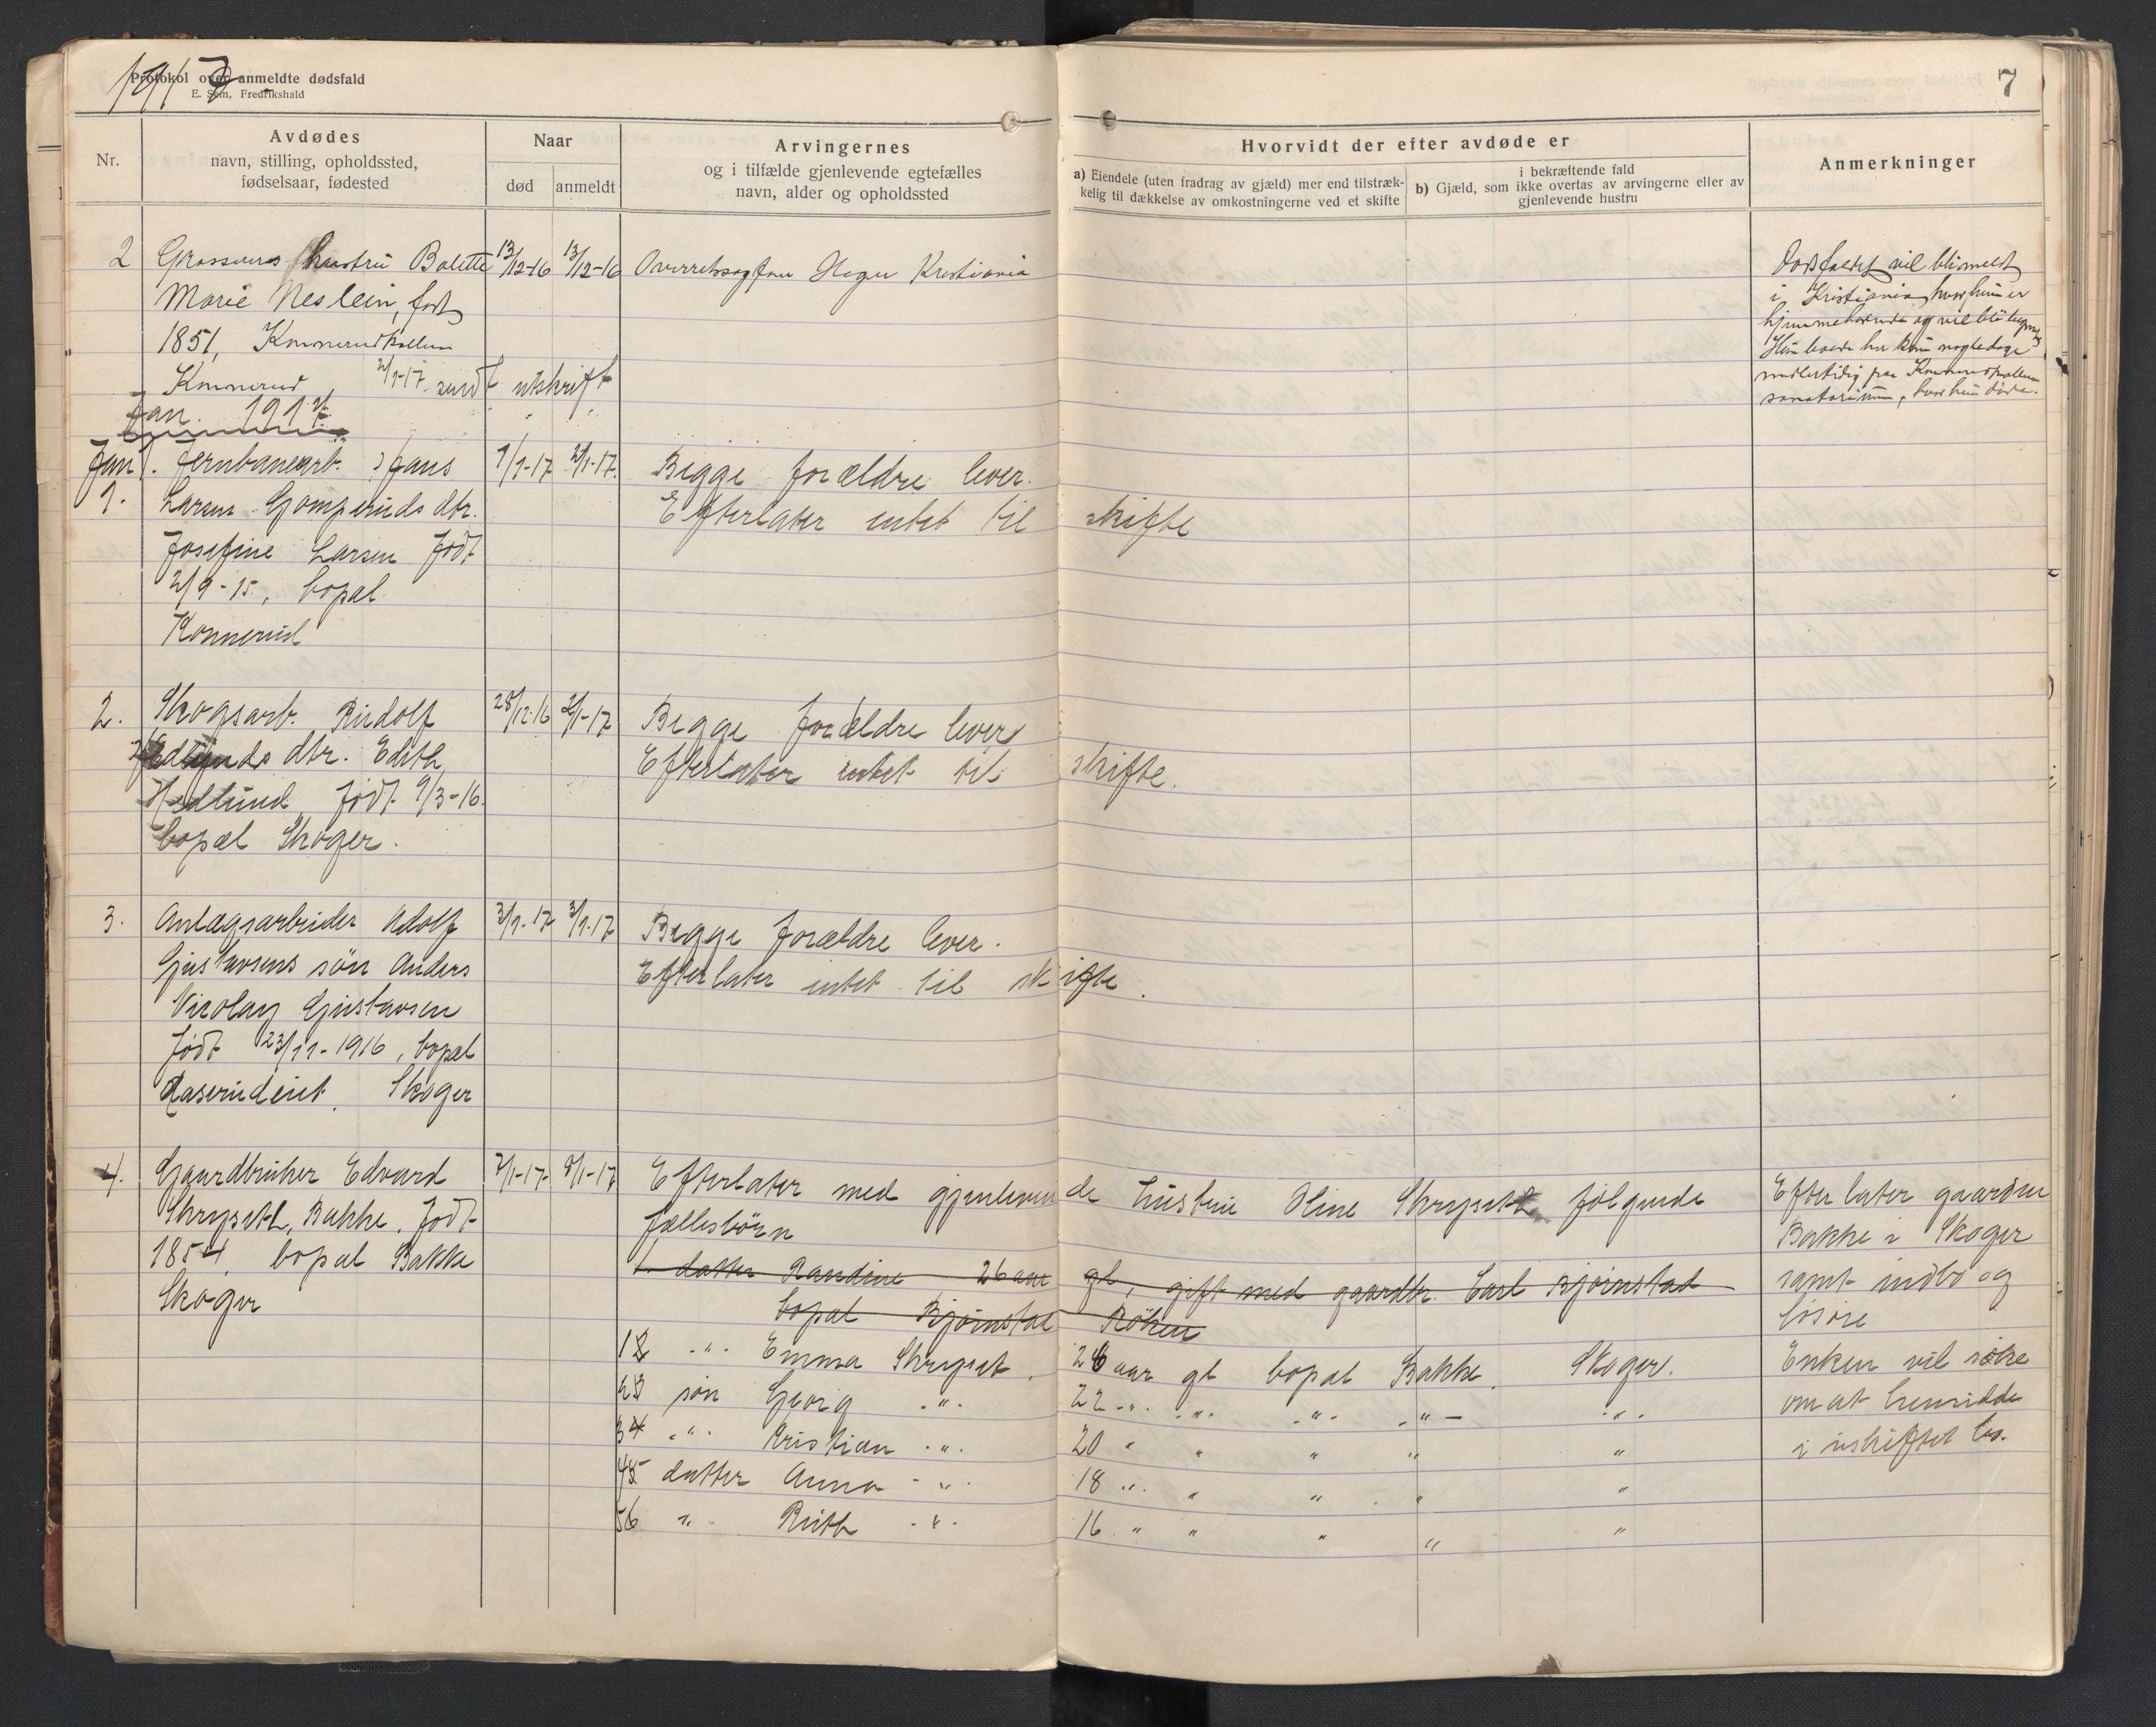 1917
Protokol over anmeldte dødsfald
E. Sem, Fredrikshald
7
Nr.
Avdødes
navn, stilling, opholdssted,
fødselsaar, fødested
Naar
død
anmeldt
Arvingernes
og i tilfælde gjenlevende egtefælles
navn, alder og opholdssted
Hvorvidt der efter avdøde er
a) Eiendele (uten fradrag av gjæld) mer end tilstræk-
kelig til dækkelse av omkostningerne ved et skifte
i bekræftende fald
b) Gjæld, som ikke overtas av arvingerne eller av
gjenlevende hustru
Anmerkninger
2 Grosserers hustru Bolette 13/12-16 13/12-16 Overretssagfører Kristiania
Marie Neslein, født
1851, Konnerudkollen
Konnerud 2/1-17 sendt utskrift
Dødsfaldet vil bli meldt
i Kristiania, hvor hun er
hjemmehørende og vil bli
Hun boede her kun nogle dage
midlertidig paa Konnerudkollen
sanatorium, hvor hun døde.
Jan. 1917
Jan. Jernbanearb. Hans 1/1-17 2/1-17. Begge forældre lever.
1. Larsen Gomperuds dtr. Efterlater intet til skifte
Josefine Larsen født
2/9-15, bopæl
Konnerud
2. Skogsarb. Rudolf 28/12-16 2/1-17 Begge forældre lever
Hedlunds dtr. Edith Efterlater intet til skifte.
Hedlund født 9/3-16.
bopæl Skoger.
3. Anlægsarbeider Adolf 3/1-17 3/1-17 Begge forældre lever.
Gustavsens søn Anders Efterlater intet til skifte.
Nicolay Gustavsen
født 23/11-1916, bopæl
Skoger
4. Gaardbruker Edvard 7/1-17 8/1-17 Efterlater med gjenlevende hustru Oline følgende
Bakke, født fællesbörn
1854, bopæl Bakke
Skoger
1. datter Randine 26 aar gl, gift med gaardbr. Carl Bjørnstad
bopæl Bjørnstad Röken
12 -"- Emma 26 aar gl bopæl Bakke, Skoger.
23 søn Georg -"- 22 -"- -"- -"- -"- -"-
34 -"- Kristian -"- 20 " " " " "
45 datter Anna -"- 18 -"- " " " "
56 " Ruth -"- 16 " " " " "
Efterlater gaarden
Bakke i Skoger
samt indbo og
løsøre
Enken vil søke
om at hensidde
i uskiftet bo.